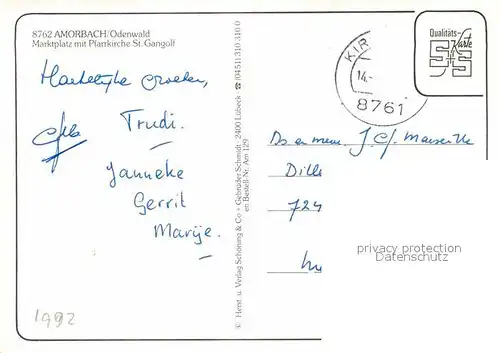 8762 AMORBACH/Odenwald
Marktplatz mit Pfarrkirche St. Gangolf
Hartelijke groeten,
Trudi.
Janneke
Gerrit
Marije.
1992
© Herst. u. Verlag Schöning & Co + Gebrüder Schmidt · 2400 Lübeck ☎ (0451) 310 310 0
Bestell-Nr. Am 129
KIR
14.-
8761
Qualitäts-
Karte
S+S
J.
Dille
724
privacy protection
Datenschutz